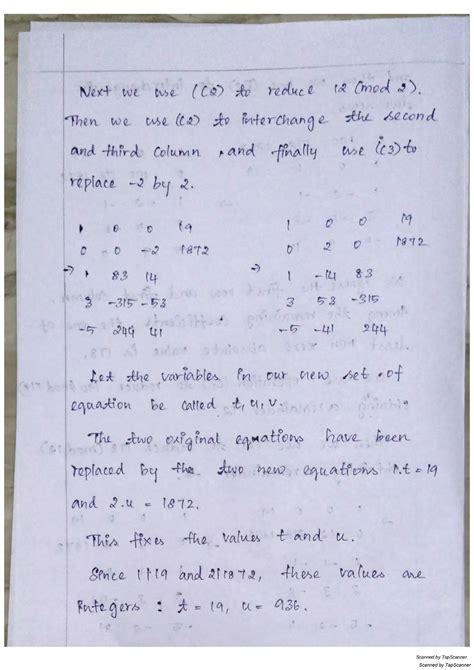 Next we use (C2) to reduce 12 (mod 2).
Then we use (C2) to interchange the second
and third column , and finally use (C3) to
replace -2 by 2.
1 0 0 19 1 0 0 19
0 0 -2 1872 0 2 0 1872
→ 1 83 14 → 1 -14 83
3 -315 -53 3 53 -315
-5 244 41 -5 -41 244
Let the variables in our new set of
equation be called t, u, v.
The two original equations have been
replaced by the two new equations 1.t = 19
and 2.u = 1872.
This fixes the values t and u.
Since 1|19 and 2|1872, these values are
integers : t = 19, u = 936.
Scanned by TapScanner
Scanned by TapScanner